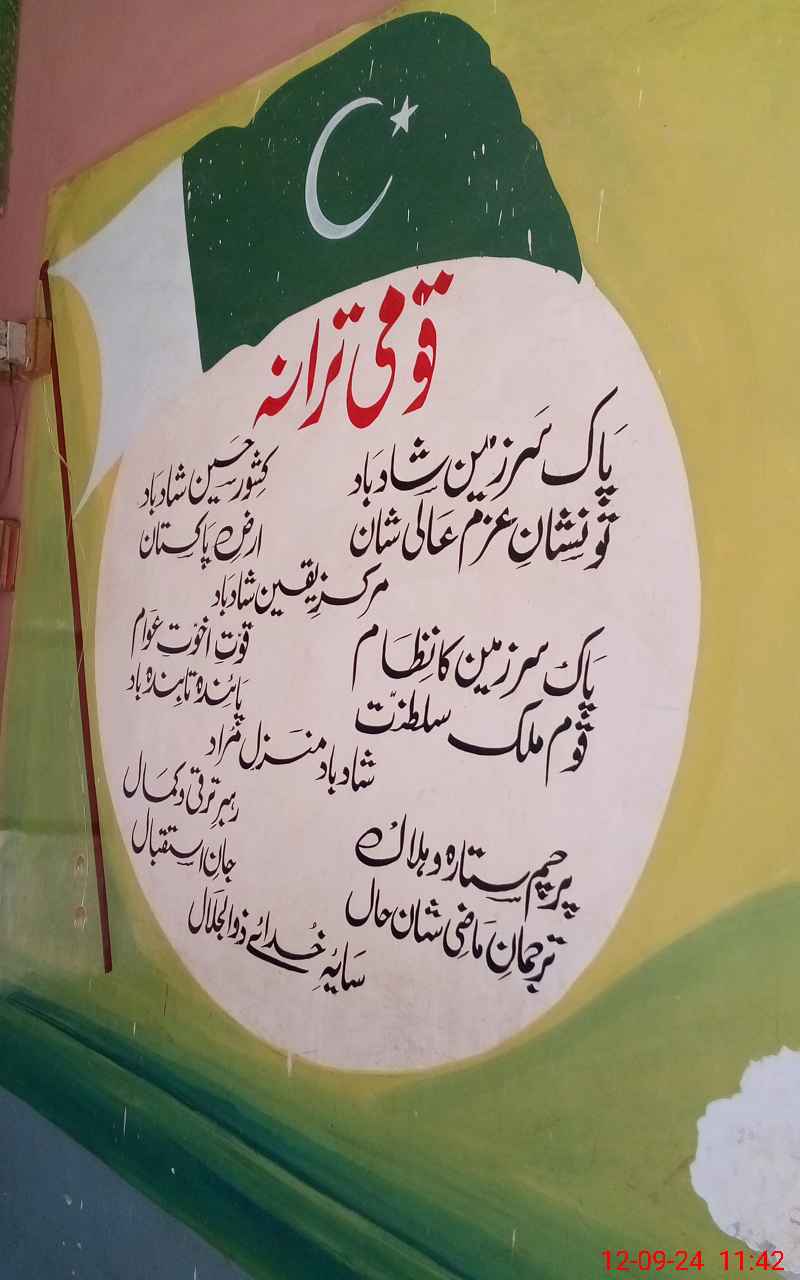 قومی ترانہ
پَاک سَرزمین شادبَاد کِشورِ حَسین شادبَاد
تو نِشانِ عزمِ عَالی شان ارضِ پَاکِستان
مرکزِ یقین شادبَاد
پَاک سرزمین کا نِظَام قوّتِ اخوّتِ عَوام
قَوم ملک سلطنّت پَائندہ تابندہ باد
شاد باد منزلِ مُراد
پرچمِ ستارہ و ہلال رہبرِ ترقی و کمَال
ترجمانِ مَاضِی شان حال جانِ استقبال
سَایۂ خُدائے ذوالجلَال
12-09-24 11:42